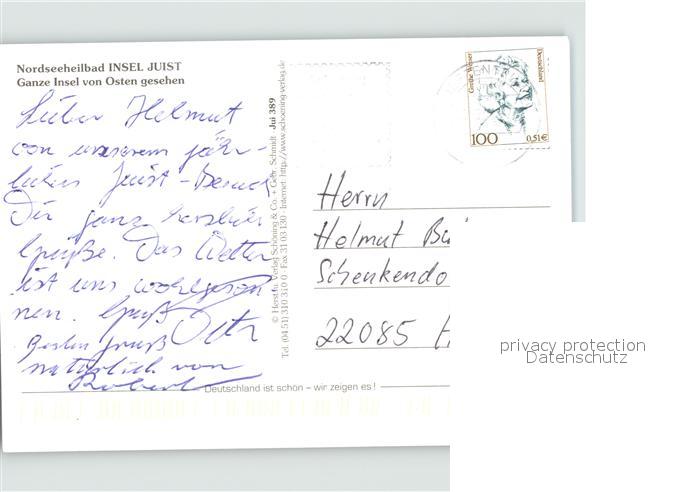 Nordseeheilbad INSEL JUIST
Ganze Insel von Osten gesehen
Lieber Helmut
von unserem jähr-
lichen Juist-Besuch
Dir ganz herzliche
Grüße. Das Wetter
ist uns wohlgeson
nen. Gruß
natürlich von
Robert
© Herst. u. Verlag Schöning & Co. + Gebr. Schmidt Jui 389
Tel. (04 51) 310 310 0 · Fax 31 03 130 · Internet: http://www.schoening-verlag.de
Deutschland ist schön – wir zeigen es!
Grethe Weiser
Deutschland
100
0,51€
Herrn
Helmut
Schenkendo
22085 H
privacy protection
Datenschutz